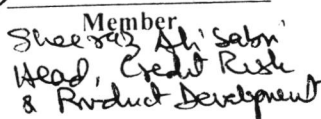 Member
Sheeraz Ali Sabri
Head, Credit Risk
& Product Development